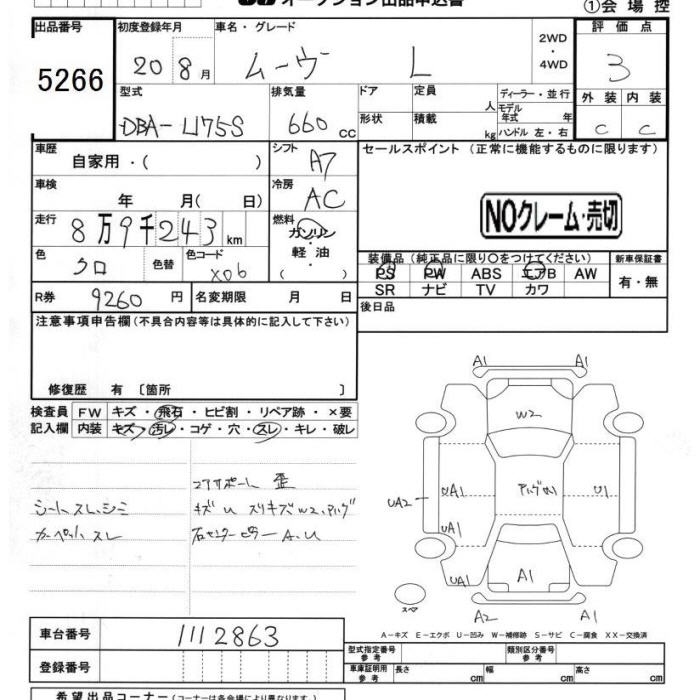 オークション出品申込書
①会場控
出品番号 初度登録年月 車名・グレード 2WD・4WD 評価点
5266 20 8月 ムーヴ L 3
型式 排気量 ドア 定員 人 ディーラー・並行 外装 内装
DBA-L175S 660 cc 形状 積載 kg モデル年式 年 ハンドル 左・右 C C
車歴 自家用・( ) シフト A7 セールスポイント (正常に機能するものに限ります)
車検 年 月( 日) 冷房 AC
NOクレーム・売切
走行 8万9千243km 燃料 ガソリン 軽油 ( )
色 クロ 色替 色コード X06
装備品(純正品に限り○をつけてください) 新車保証書
PS PW ABS エアB AW 有・無
SR ナビ TV カワ
R券 9260円 名変期限 月 日 後日品
注意事項申告欄(不具合内容等は具体的に記入して下さい)
修復歴 有〔箇所 〕
検査員 FW キズ・飛石・ヒビ割・リペア跡・×要
記入欄 内装 キズ・汚レ・コゲ・穴・スレ・キレ・破レ
コアサポート 歪
シートスレ、シミ キズU スリキズW2、
カーペットスレ 右センターピラーA、U
A1 A1
W2
UA2 UA1 U1
UA1
UA1 A1
スペア A2 A1
A-キズ E-エクボ U-凹み W-補修跡 S-サビ C-腐食 XX-交換済
車台番号 1112863
型式指定番号 参考 類別区分番号 参考
登録番号 車庫証明用 参考 長さ cm 幅 cm 高さ cm
希望出品コーナー(コーナーは各会場により異なります。